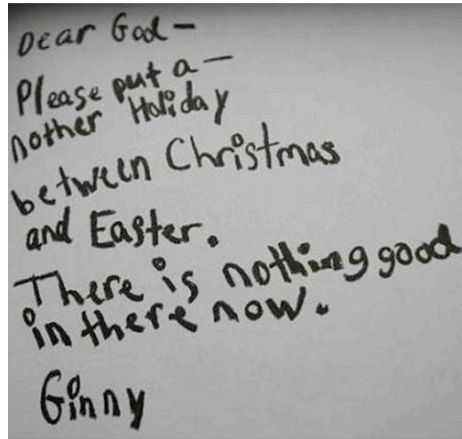 Dear God-
Please put a-
nother Holiday
between Christmas
and Easter.
There is nothing good
in there now.
Ginny